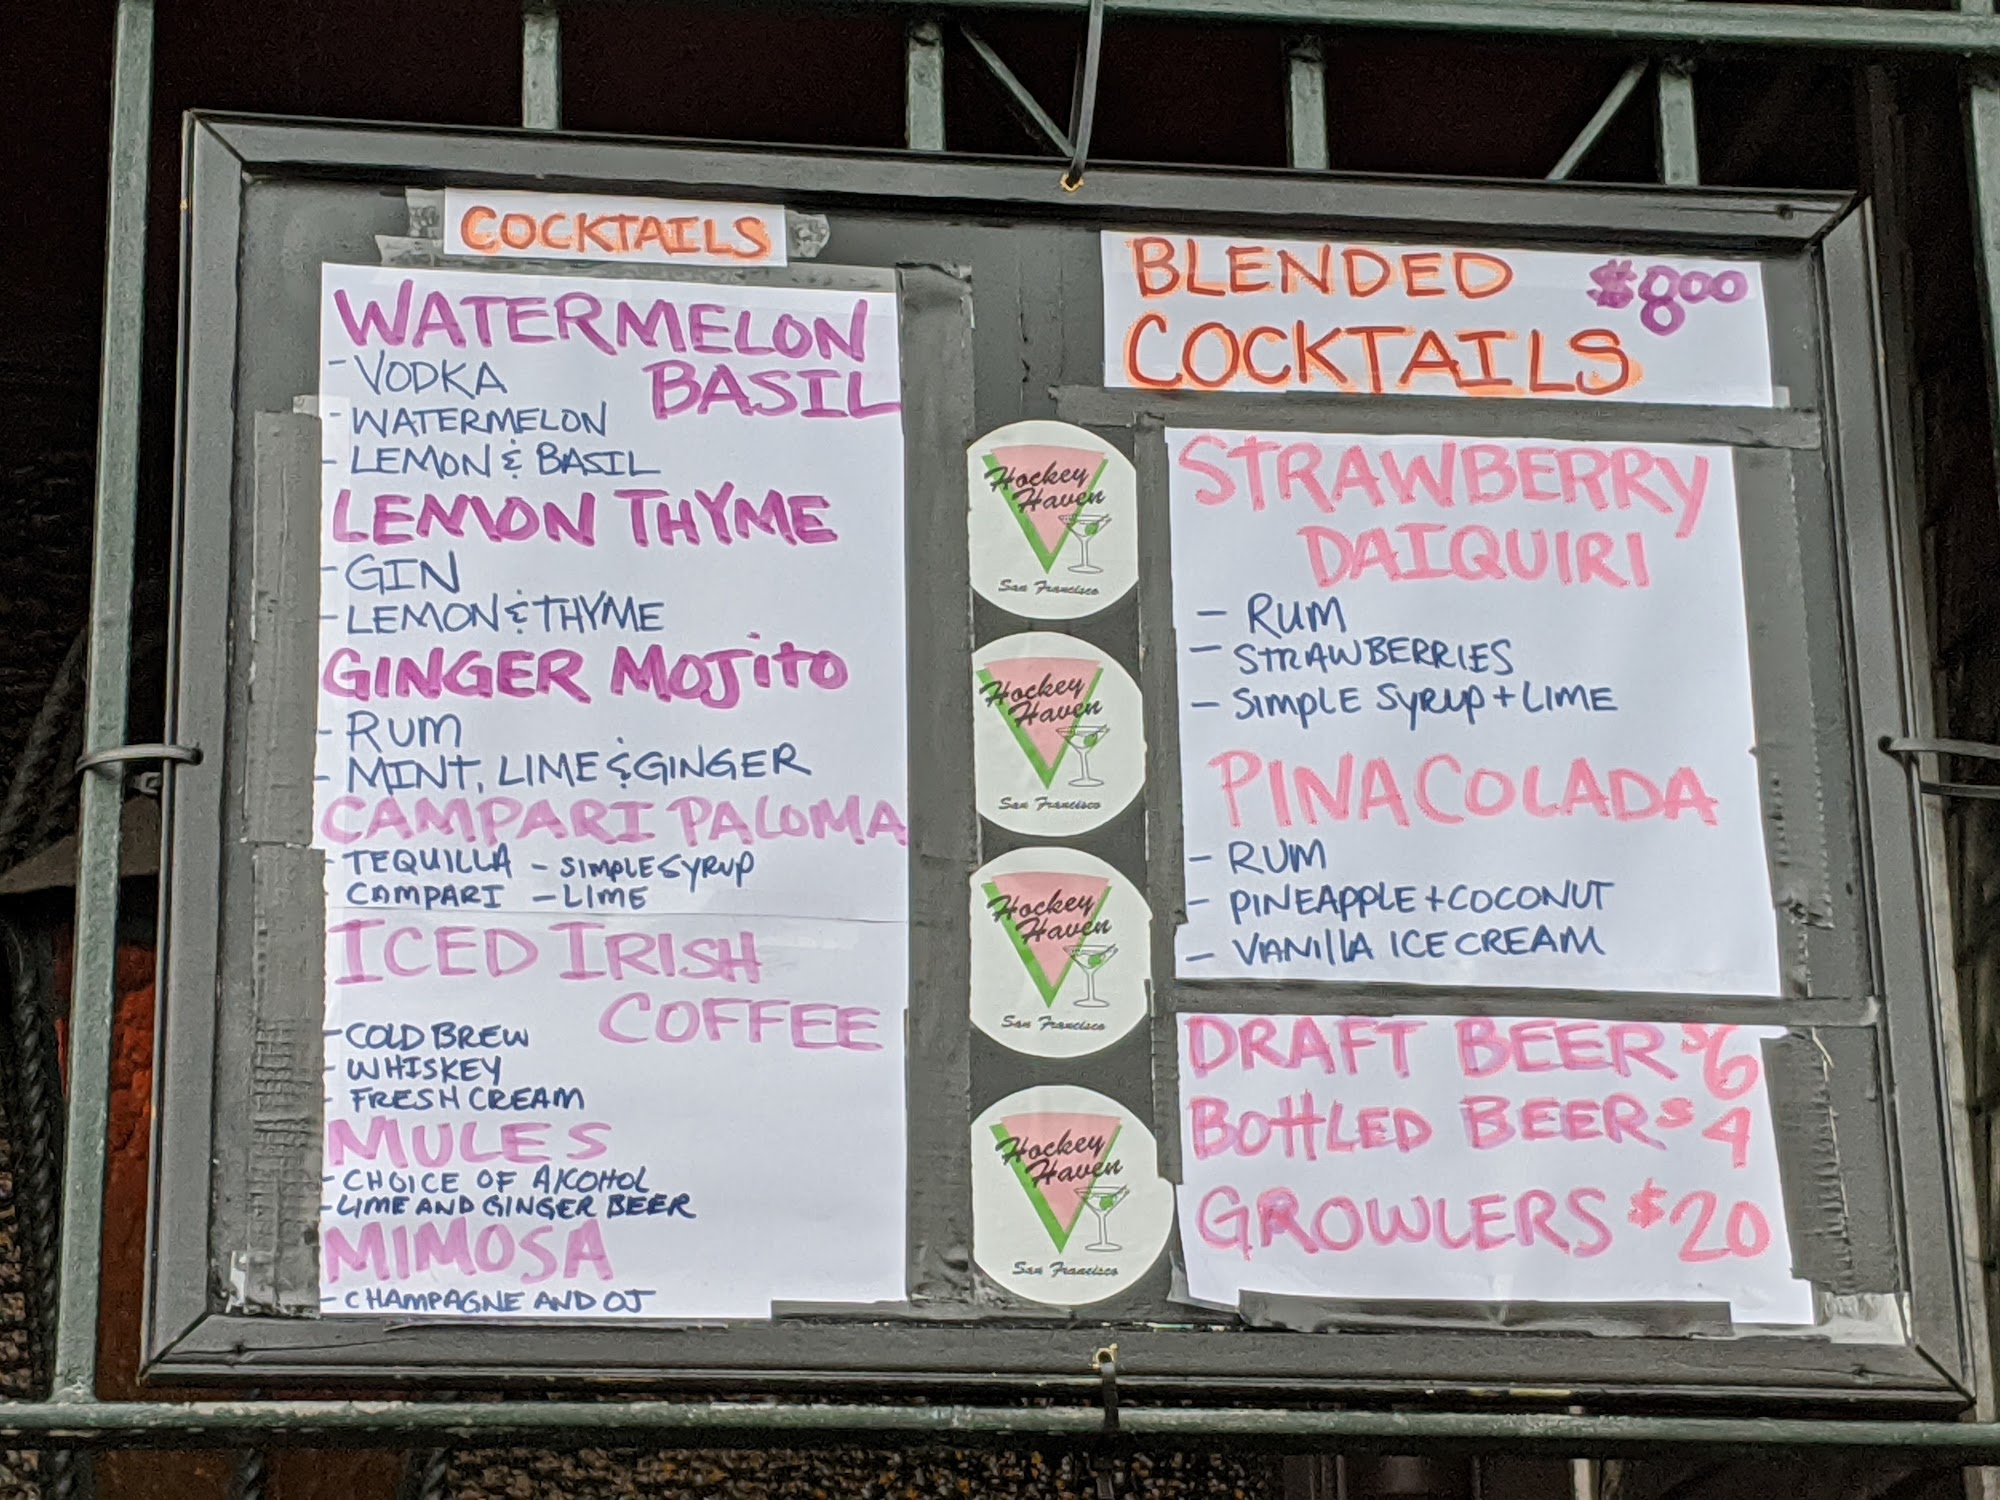 COCKTAILS
WATERMELON
BASIL
- VODKA
- WATERMELON
- LEMON & BASIL
LEMON THYME
- GIN
- LEMON & THYME
GINGER MOJiTO
- RUM
- MINT, LIME & GINGER
CAMPARI PALOMA
- TEQUILLA - SIMPLE SYRUP
- CAMPARI - LIME
ICED IRISH
COFFEE
- COLD BREW
- WHISKEY
- FRESH CREAM
MULES
- CHOICE OF AlCOHOL
- LIME AND GINGER BEER
MIMOSA
- CHAMPAGNE AND OJ
Hockey
Haven
San Francisco
Hockey
Haven
San Francisco
Hockey
Haven
San Francisco
Hockey
Haven
San Francisco
BLENDED $8.00
COCKTAILS
STRAWBERRY
DAIQUIRI
- RUM
- STRAWBERRIES
- SIMPLE SYRUP + LIME
PINA COLADA
- RUM
- PINEAPPLE + COCONUT
- VANIllA ICE CREAM
DRAFT BEER $6
BOttLED BEER $4
GROWLERS $20